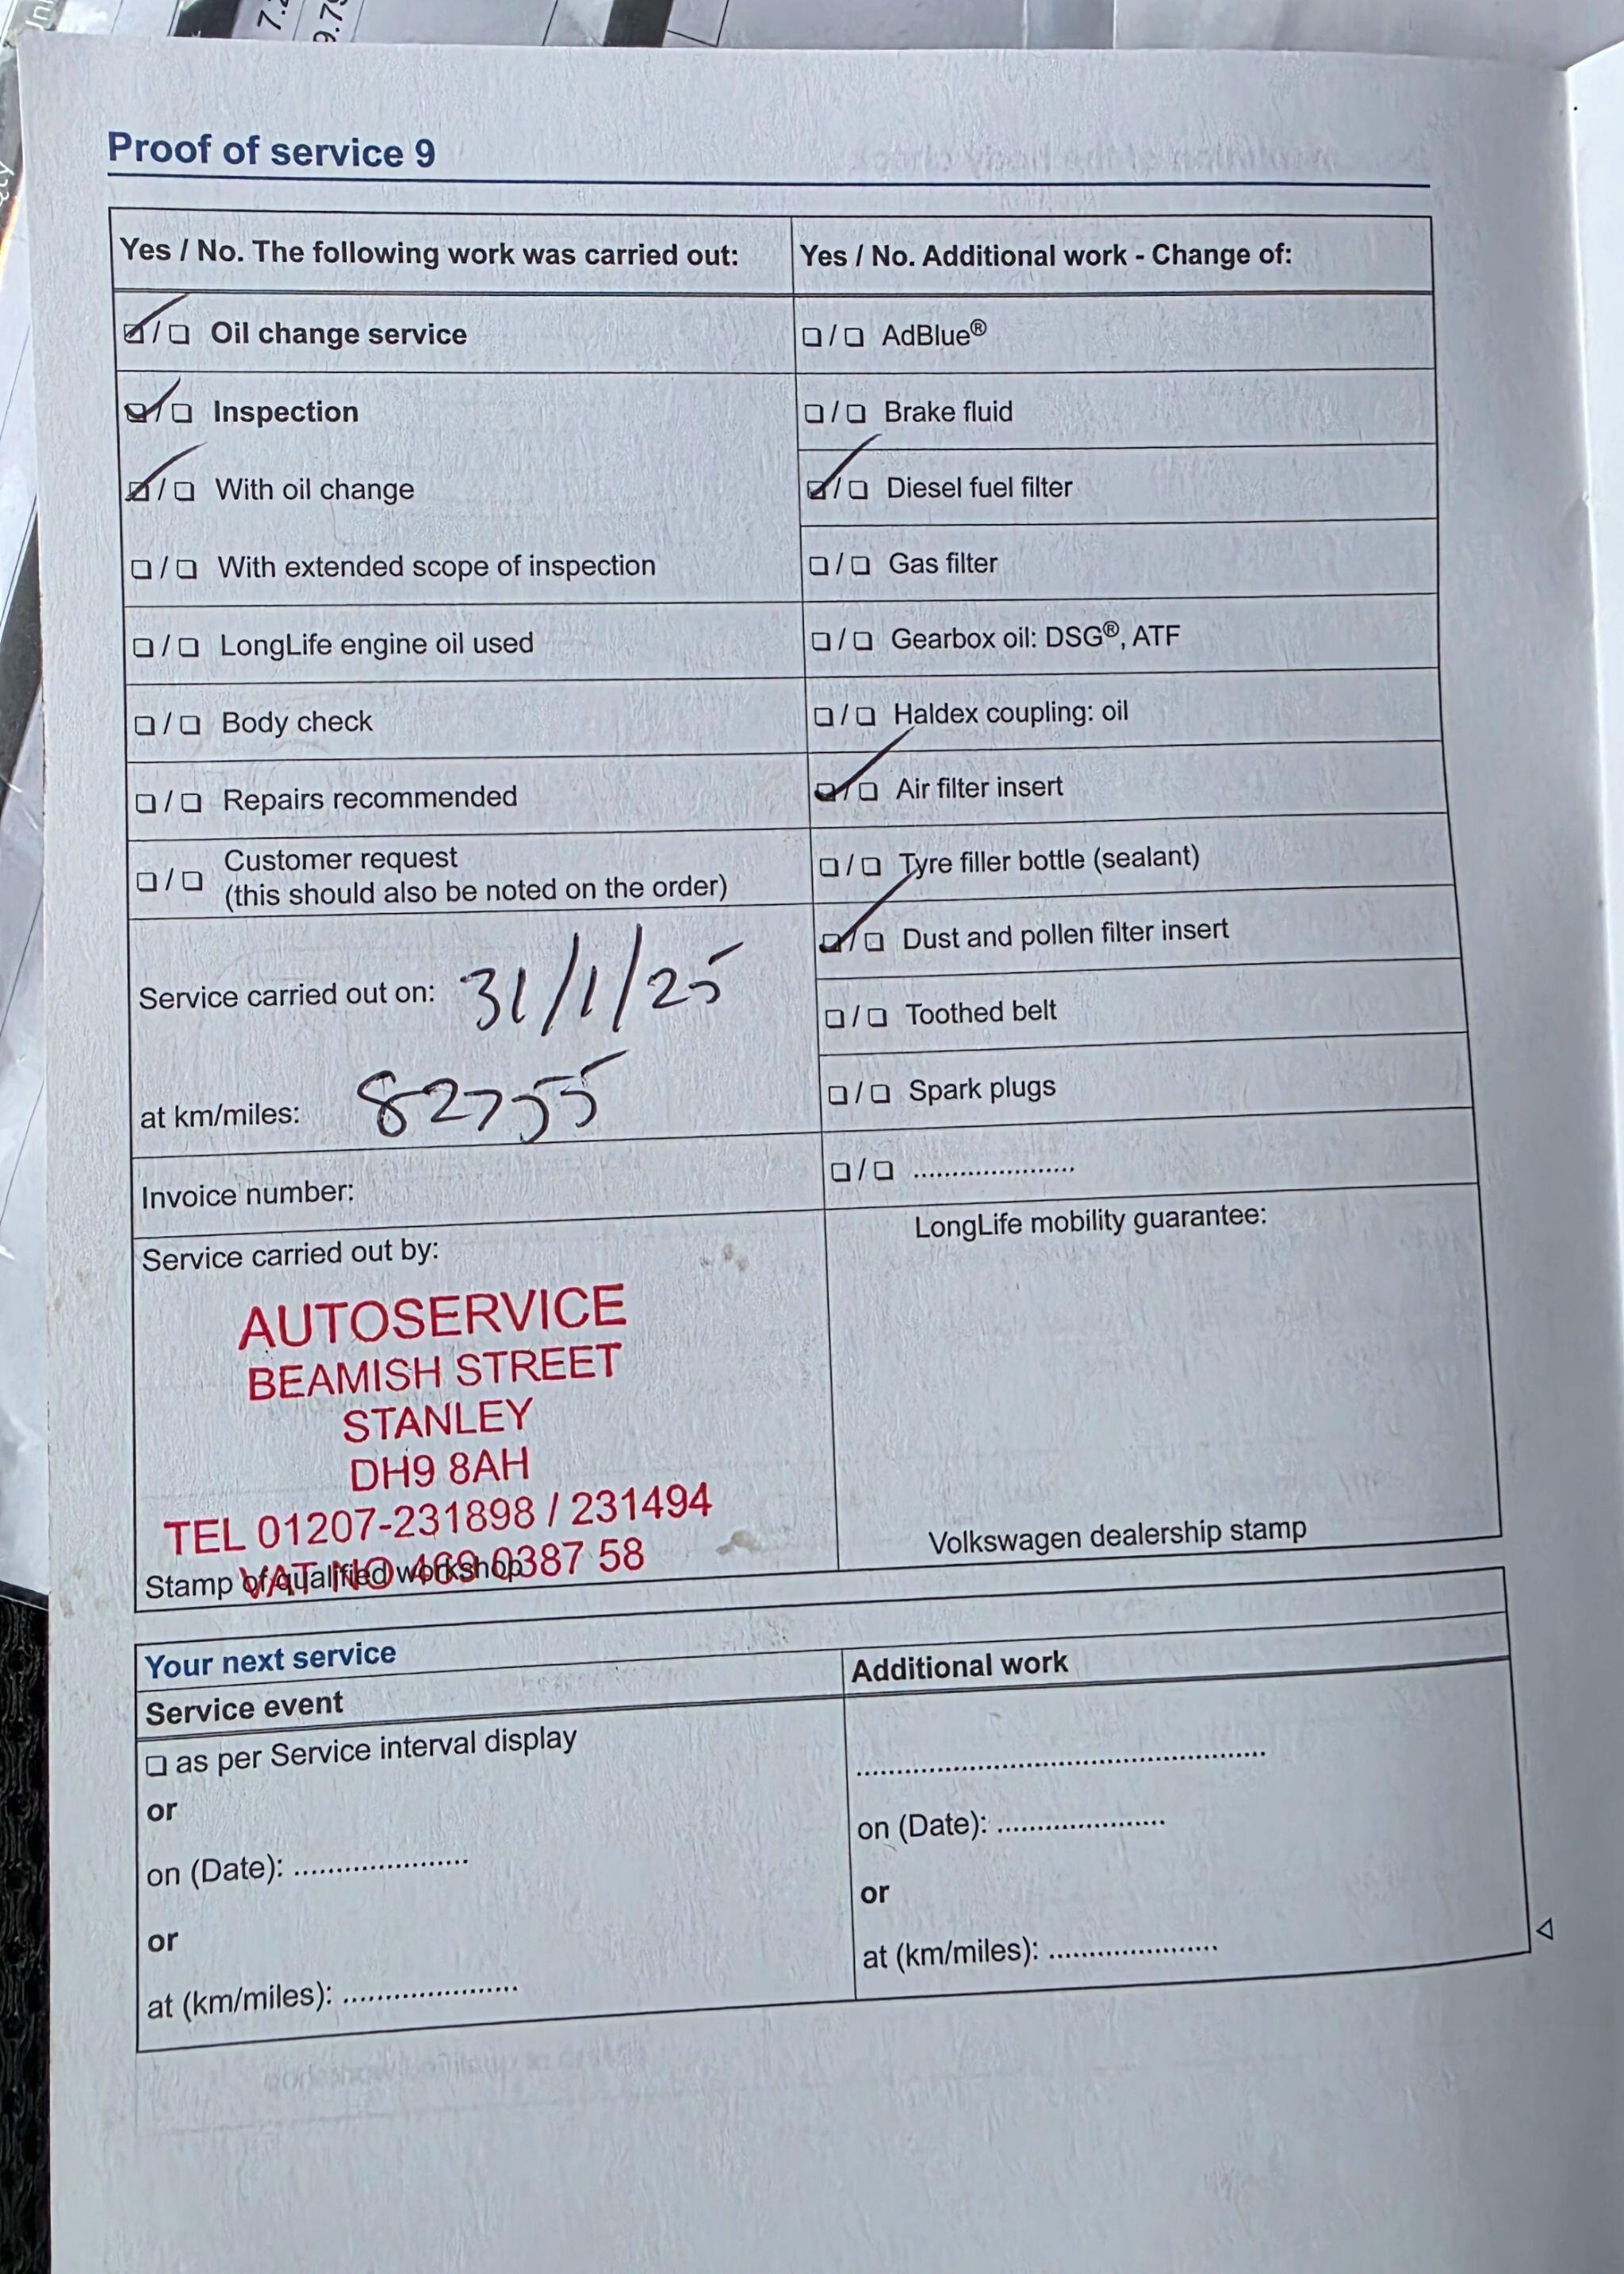 7.
9.79
Proof of service 9
Yes / No. The following work was carried out:
☑/☐ Oil change service
☑/☐ Inspection
☑/☐ With oil change
☐/☐ With extended scope of inspection
☐/☐ LongLife engine oil used
☐/☐ Body check
☐/☐ Repairs recommended
☐/☐ Customer request
(this should also be noted on the order)
Service carried out on: 31/1/25
at km/miles: 82755
Invoice number:
Service carried out by:
AUTOSERVICE
BEAMISH STREET
STANLEY
DH9 8AH
TEL 01207-231898 / 231494
VAT NO 469 0387 58
Stamp of qualified workshop
Yes / No. Additional work - Change of:
☐/☐ AdBlue®
☐/☐ Brake fluid
☑/☐ Diesel fuel filter
☐/☐ Gas filter
☐/☐ Gearbox oil: DSG®, ATF
☐/☐ Haldex coupling: oil
☑/☐ Air filter insert
☐/☐ Tyre filler bottle (sealant)
☑/☐ Dust and pollen filter insert
☐/☐ Toothed belt
☐/☐ Spark plugs
☐/☐ ......................
LongLife mobility guarantee:
Volkswagen dealership stamp
Your next service
Service event
☐ as per Service interval display
or
on (Date): ......................
or
at (km/miles): ......................
Additional work
......................................................
on (Date): ......................
or
at (km/miles): ......................